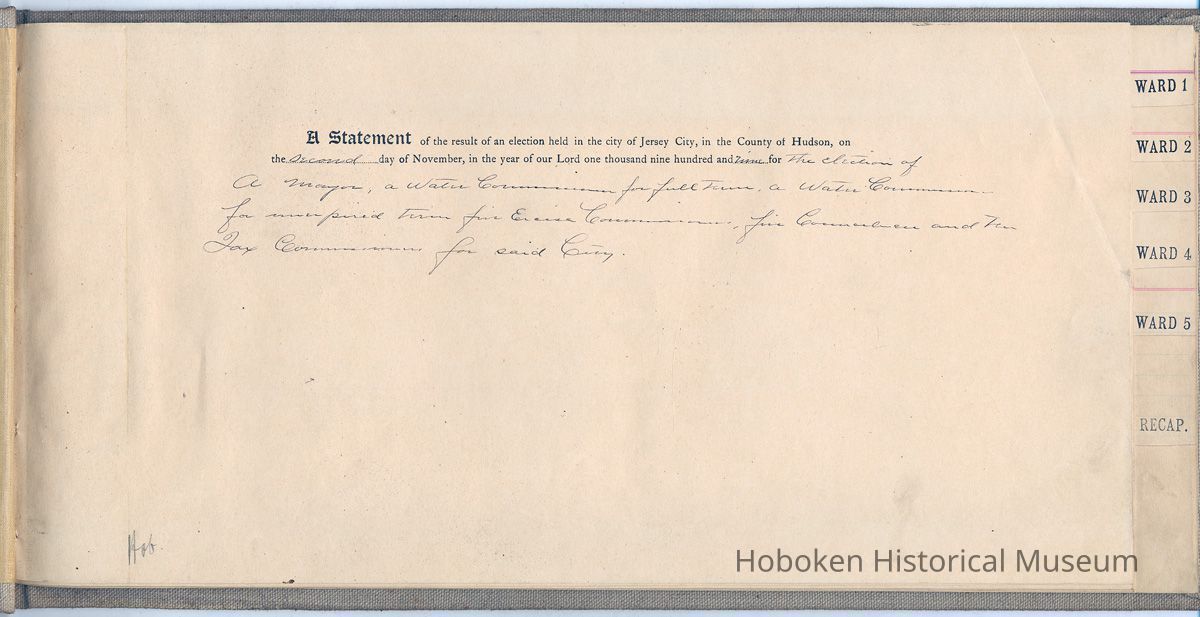 A Statement of the result of an election held in the city of Jersey City, in the County of Hudson, on
the second day of November, in the year of our Lord one thousand nine hundred and nine for the election of
A Mayor, a Water Commissioner for full term, a Water Commissioner
for unexpired term five Excise Commissioners, five Councilmen and
Tax Commissioners for said City.
Hob.
WARD 1
WARD 2
WARD 3
WARD 4
WARD 5
RECAP.
Hoboken Historical Museum